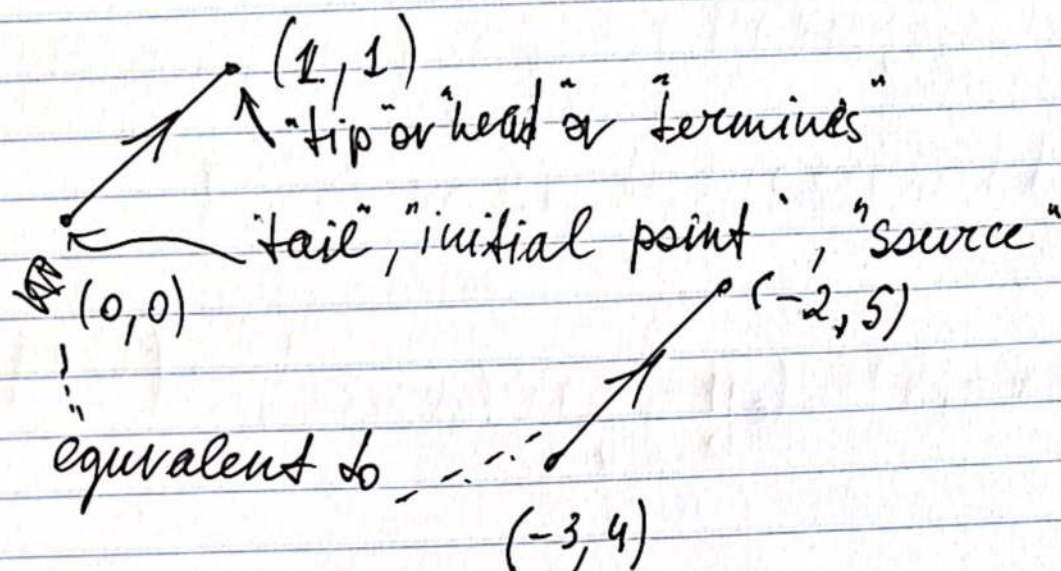 (1, 1)
"tip" or "head" or "terminus"
"tail", "initial point", "source"
(0,0)
(-2, 5)
equivalent to
(-3, 4)